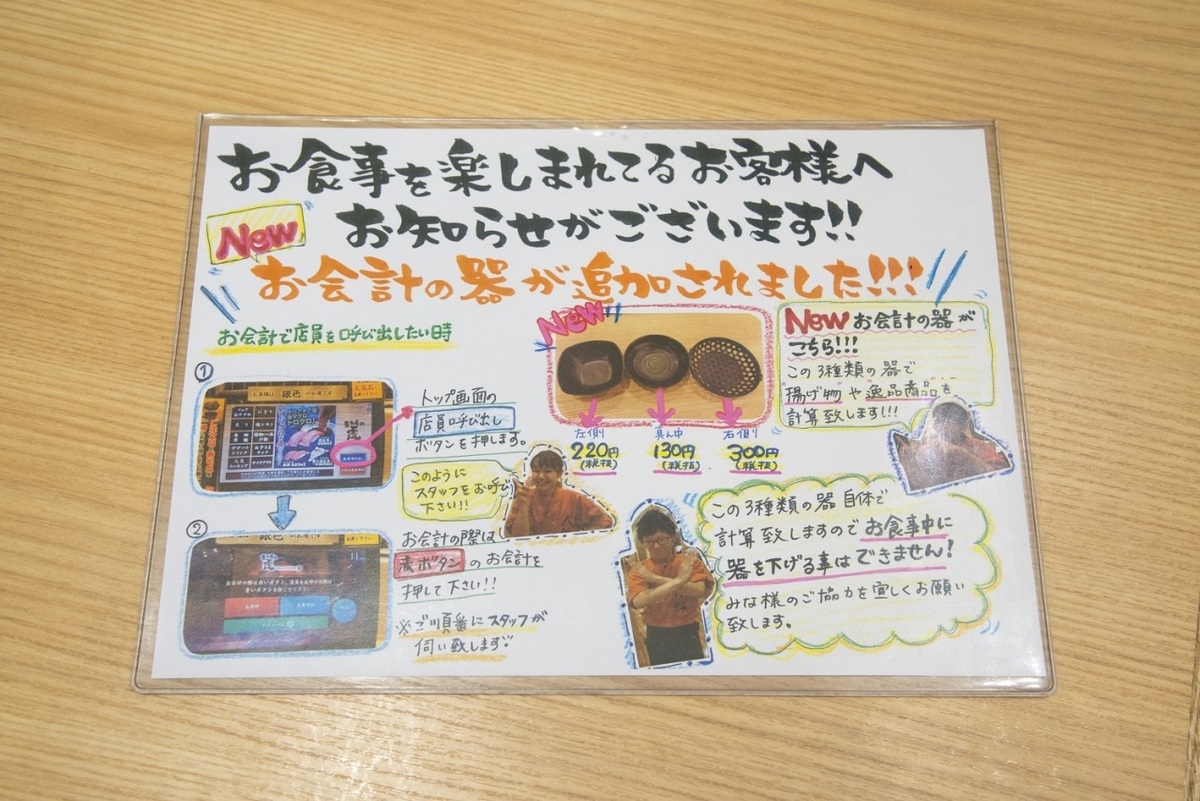 お食事を楽しまれてるお客様へ
お知らせがございます!!
New
お会計の器が追加されました!!!
お会計で店員を呼び出したい時
①
トップ画面の
店員呼び出し
ボタンを押します。
このように
スタッフをお呼び
下さい!!
②
お会計の際は
赤ボタンのお会計を
押して下さい!!
※ご順番にスタッフが
伺い致します
New
左側
220円
(税抜)
真ん中
130円
(税抜)
右側
300円
(税抜)
Newお会計の器が
こちら!!!
この3種類の器で
揚げ物や逸品商品を
計算致します!!!
この3種類の器自体で
計算致しますのでお食事中に
器を下げる事はできません!
みな様のご協力を宜しくお願い
致します。